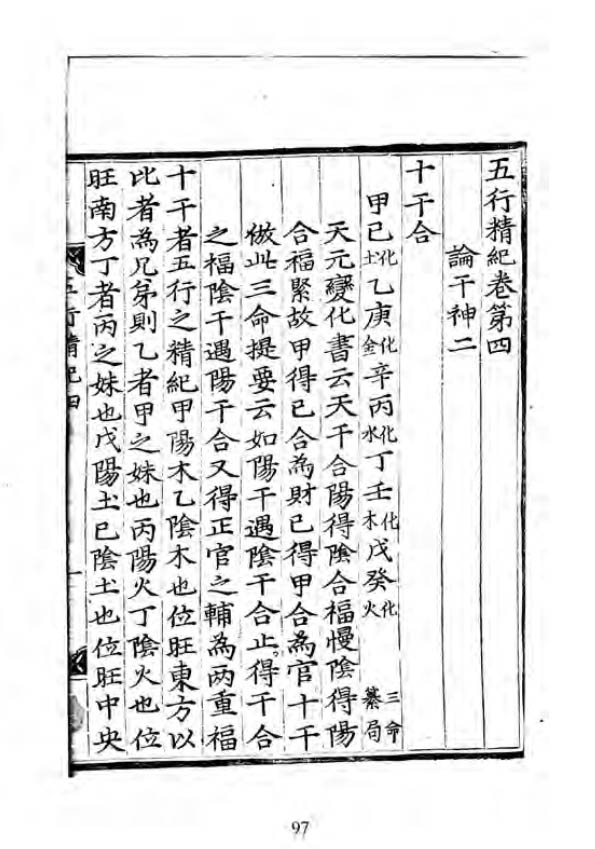 五行精紀卷第四
論干神二
十干合
甲己化土乙庚化金辛丙化水丁壬化木戊癸化火 三命纂局
天元變化書云天干合陽得陰合福慢陰得陽
合福緊故甲得已合為財已得甲合為官十干
倣此三命提要云如陽干遇陰干合止得干合
之福陰干遇陽干合又得正官之輔為两重福
十干者五行之精紀甲陽木乙陰木也位旺東方以
此者為兄弟則乙者甲之妹也丙陽火丁陰火也位
旺南方丁者丙之妹也戊陽土巳陰土也位旺中央
五行精紀四
97